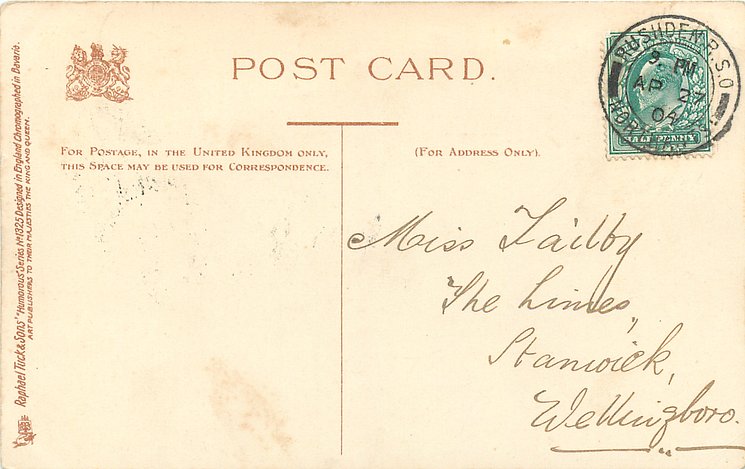 POST CARD.
FOR POSTAGE, IN THE UNITED KINGDOM ONLY,
THIS SPACE MAY BE USED FOR CORRESPONDENCE.
(FOR ADDRESS ONLY).
RUSHDEN R.S.O
3 PM
AP 27
04
HALF PENNY
Miss Tailby
The Limes,
Stanwick,
Wellingboro.
Raphael Tuck & Sons' "Humorous" Series No 1325 Designed in England Chromographed in Bavaria.
ART PUBLISHERS TO THEIR MAJESTIES THE KING AND QUEEN.